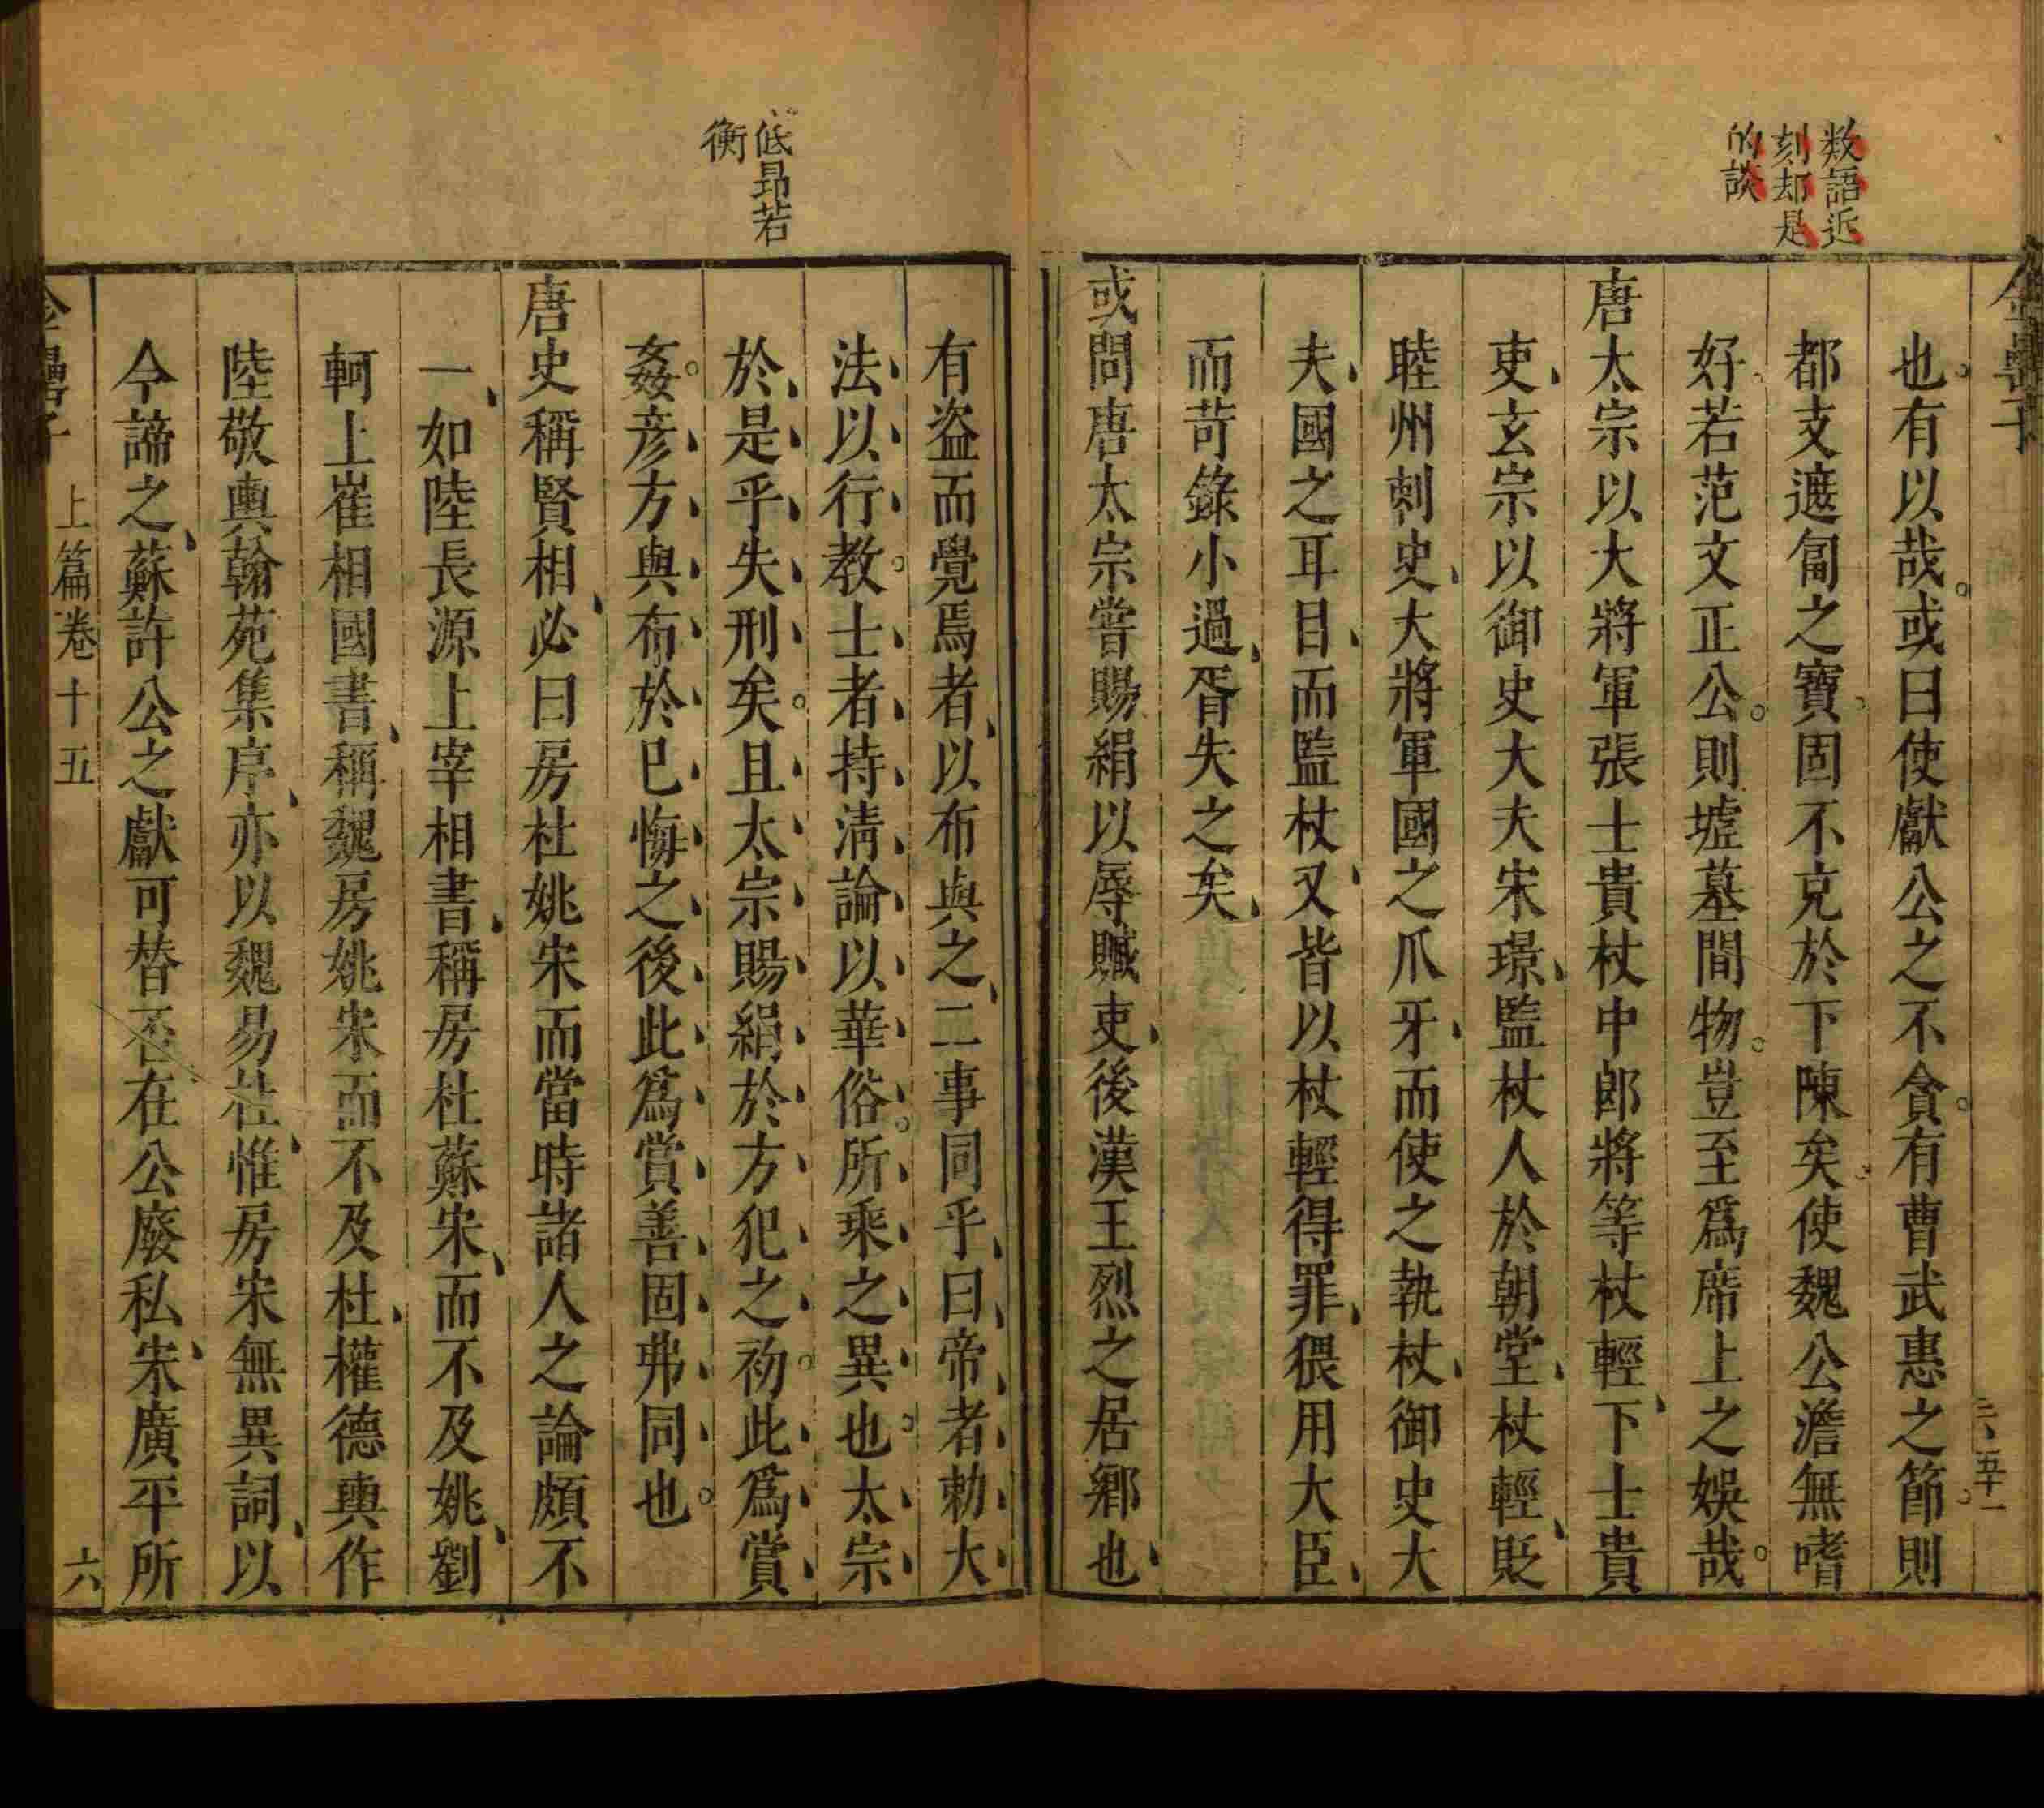 數語近
刻却是
的談
也有以哉或曰使獻公之不貪有曹武惠之節則
都支遮匐之寶固不克於下陳矣使魏公澹無嗜
好若范文正公則墟墓間物豈至爲席上之娛哉
唐太宗以大將軍張士貴杖中郎將等杖輕下士貴
吏玄宗以御史大夫宋璟監杖人於朝堂杖輕貶
睦州刺史大將軍國之爪牙而使之執杖御史大
夫國之耳目而監杖又皆以杖輕得罪猥用大臣
而苛錄小過胥失之矣
或問唐太宗嘗賜絹以辱贓吏後漢王烈之居鄉也
低昂若
衡
有盗而覺焉者以布與之二事同乎曰帝者勅大
法以行教士者持清論以華俗所乘之異也太宗
於是乎失刑矣且太宗賜絹於方犯之初此爲賞
姦彦方與布於已悔之後此爲賞善固弗同也
唐史稱賢相必曰房杜姚宋而當時諸人之論頗不
一如陸長源上宰相書稱房杜蘇宋而不及姚劉
軻上崔相國書稱魏房姚宋而不及杜權德輿作
陸敬輿翰苑集序亦以魏易杜惟房宋無異詞以
今諦之蘇許公之獻可替否在公廢私宋廣平所
上篇卷十五
六